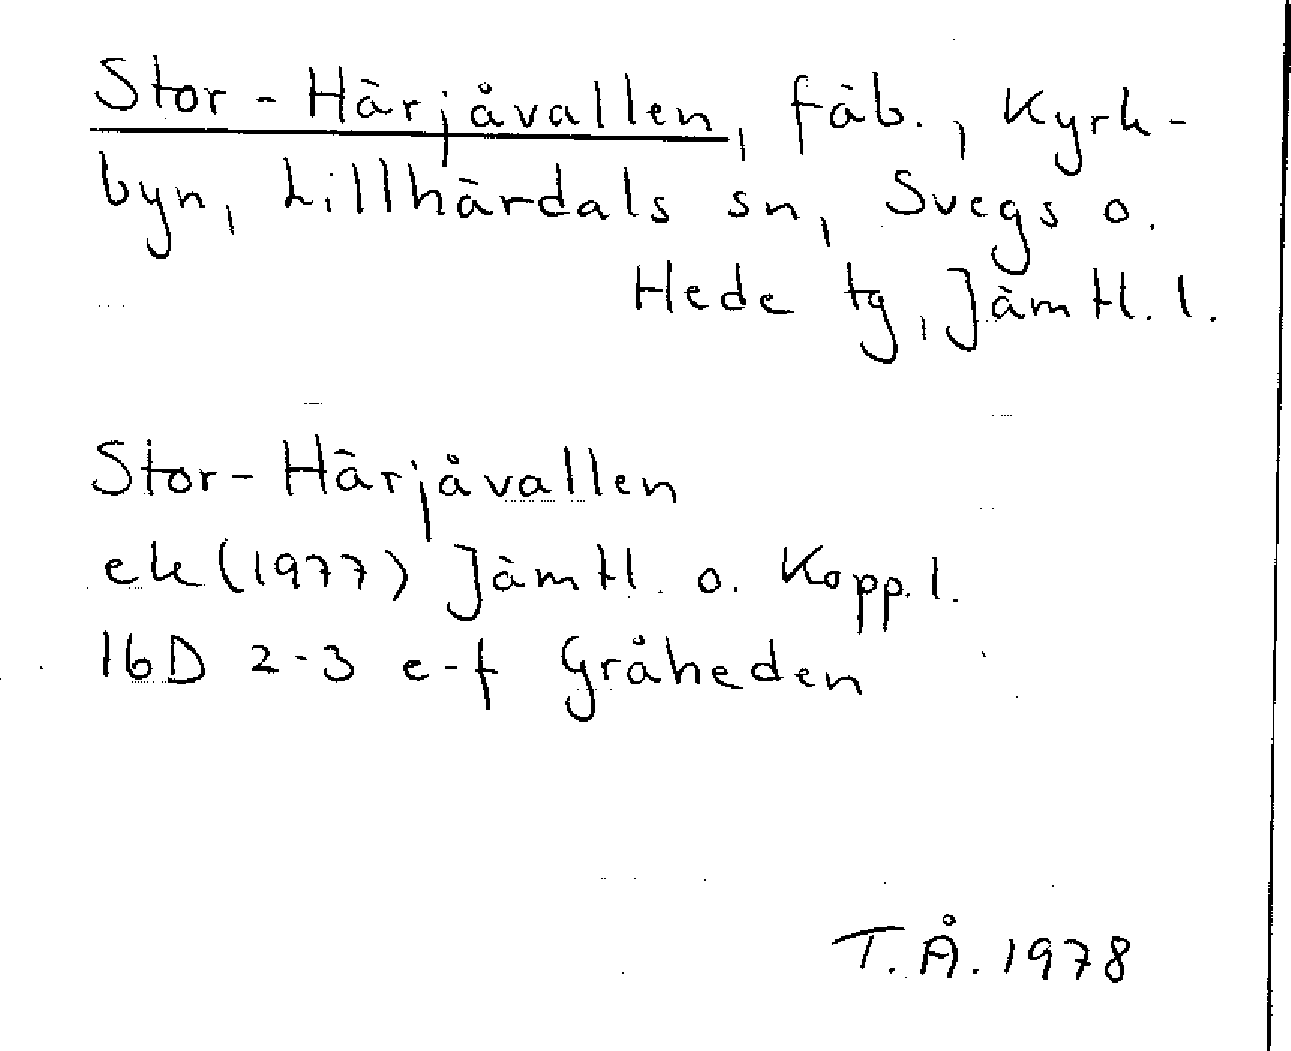 Stor-Härjåvallen, fäb., Kyrk-
byn, Lillhärdals sn, Svegs o.
Hede tg, Jämtl. l.
Stor-Härjåvallen
ek (1977) Jämtl. o. Kopp. l.
16D 2-3 e-f Gråheden
T.Å. 1978